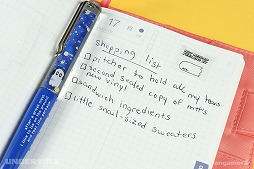 17
shopping list
pitcher to hold all my tears
second sealed copy of mtt's
new vinyl
sandwich ingredients
little snail-sized sweaters
UNDERTALE
fangamer